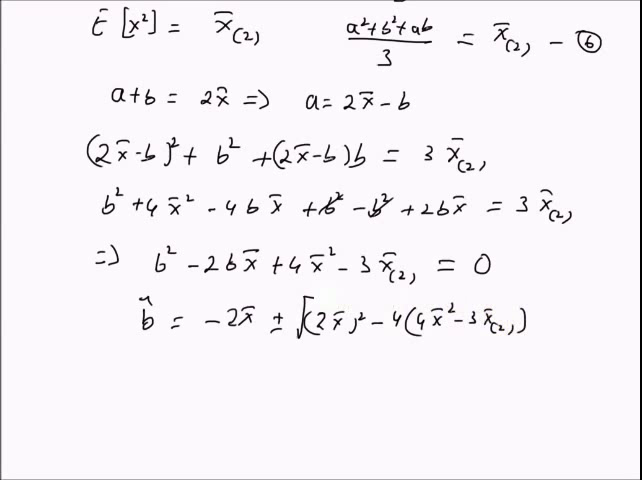 E [x²] = x̄₍₂₎   (a²+b²+ab)/3 = x̄₍₂₎ – ⑥
a+b = 2x̄ => a = 2x̄ – b
(2x̄-b)² + b² + (2x̄-b)b = 3 x̄₍₂₎
b² + 4x̄² - 4bx̄ + b̸² - b̸² + 2bx̄ = 3 x̄₍₂₎
=> b² - 2bx̄ + 4x̄² - 3x̄₍₂₎ = 0
b̂ = - 2x̄ ± √(2x̄)² - 4(4x̄² - 3x̄₍₂₎)